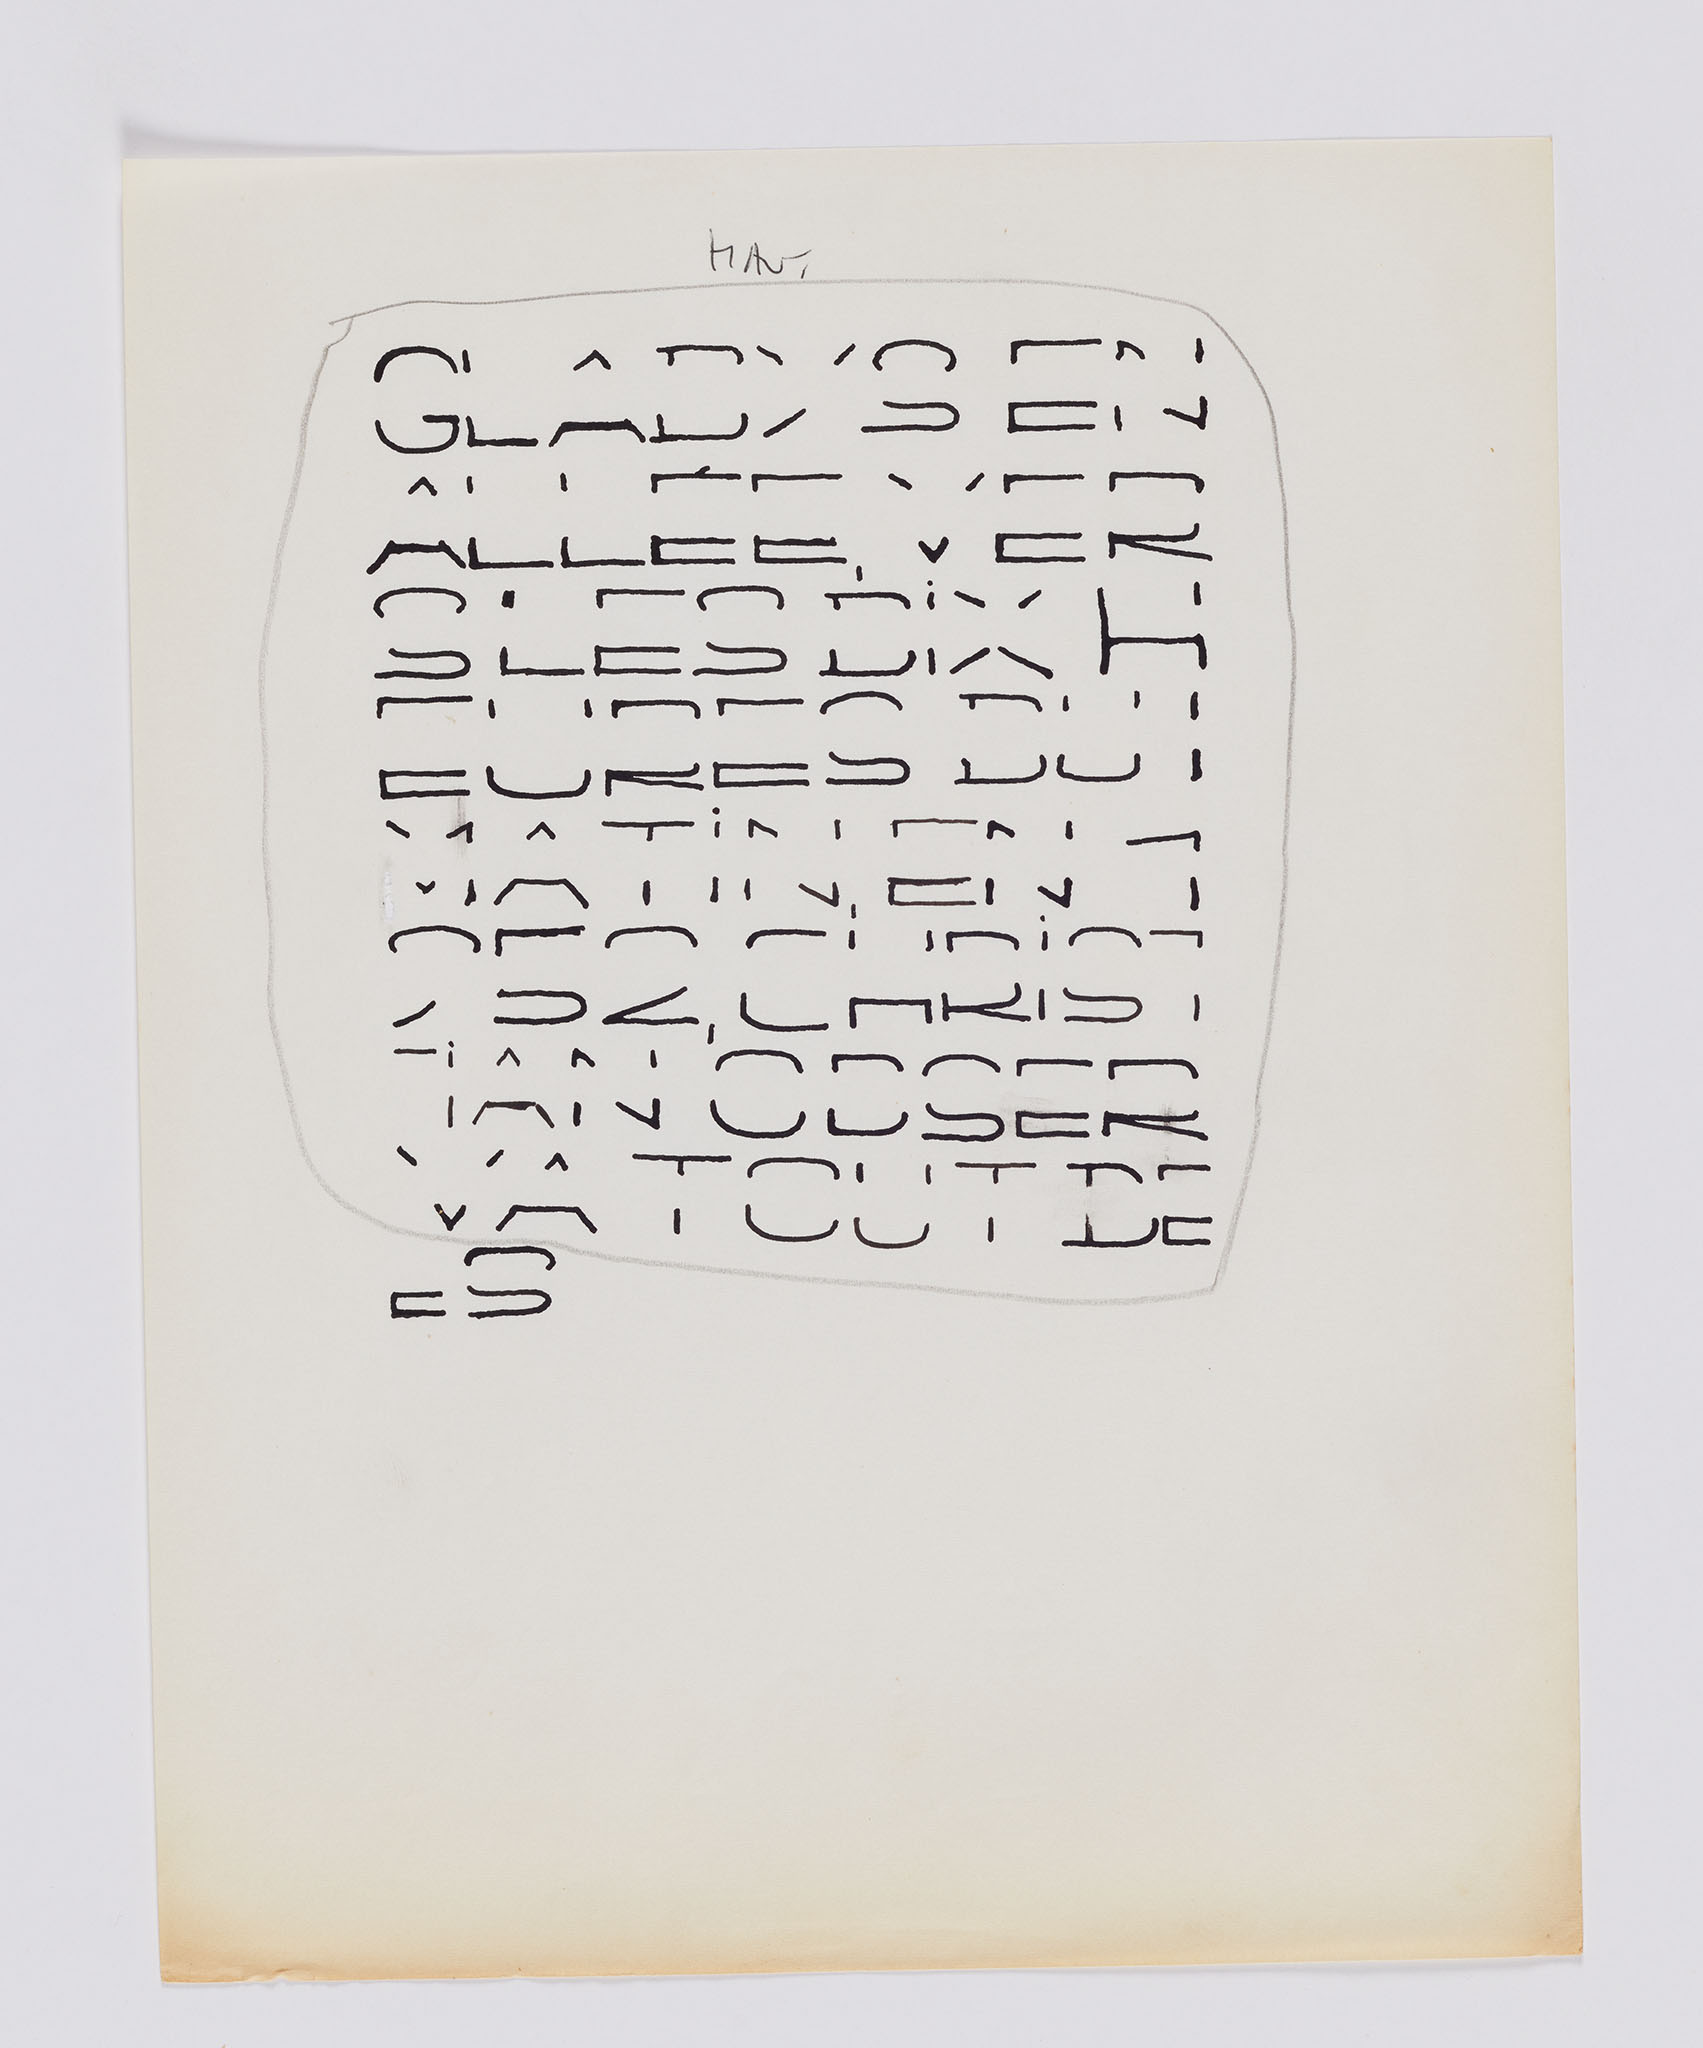 HAUT
GLADYS EN
ALLÉE, VER
S LES DIX H
EURES DU
MATIN, EN 1
952, CHRIST
IAN OBSER
VA TOUT DE
ES